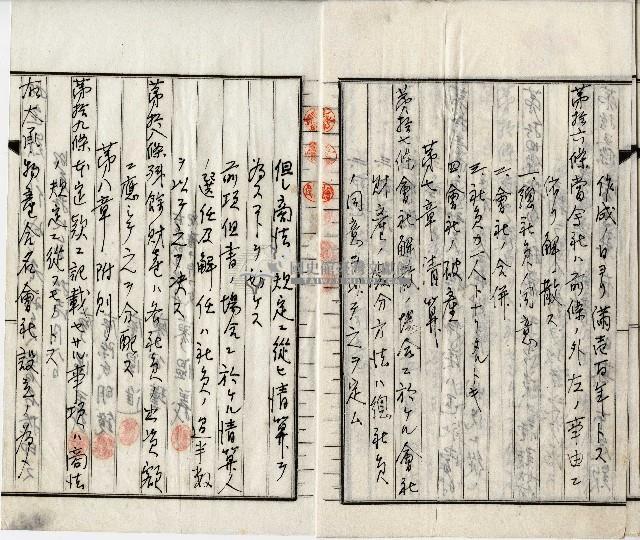 作成ノ日ヨリ満壱百年トス
第拾六條當會社ハ前條ノ外左ノ事由ニ
依リ解散ス
一、總社員ノ同意
二、會社ノ合併
三、社員カ一人トナリタルトキ
四、會社ノ破産
第七章 清算
第拾七條會社解散ノ場合ニ於ケル會社
財産ノ處分方法ハ總社員
ノ同意ヲ以テ之ヲ定ム
但シ商法ノ規定ニ從ヒ清算ヲ
為スコトヲ妨ケス
前項但書ノ場合ニ於ケル清算人
ノ選任及解任ハ社員ノ過半数
ヲ以テ之ヲ決ス
第拾八條残餘財産ハ各社員ノ出資額
ニ應シテ之ヲ分配ス
第八章 附則
第拾九條本定款ニ記載セサル事項ハ商法
ノ規定ニ從フモノトス
右大承物産合名會社設立ノ為メ